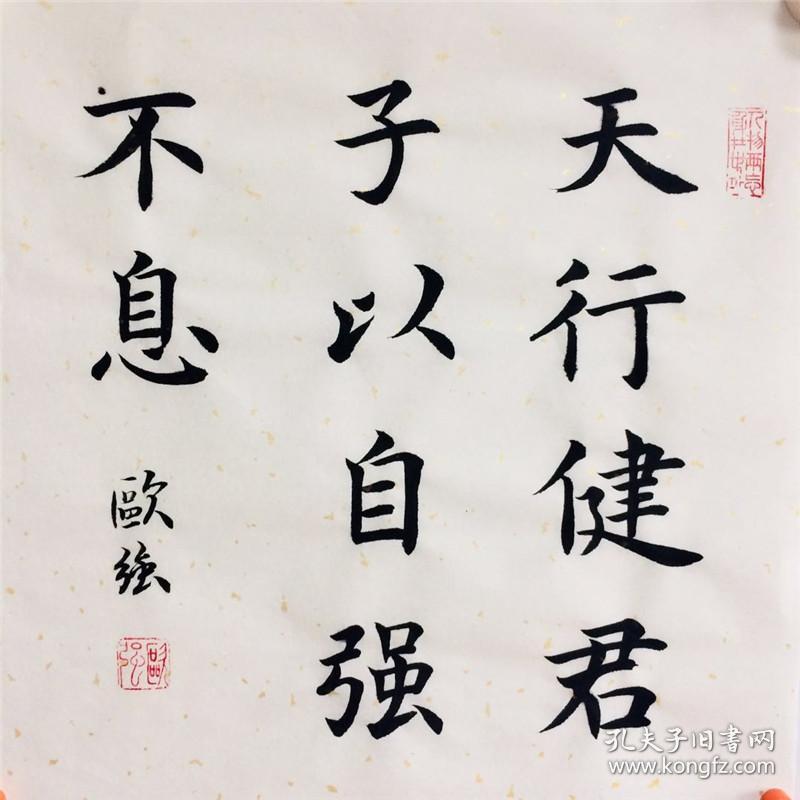 天行健君
子以自强
不息
歐強
歐强
孔夫子旧書网
www.kongfz.com